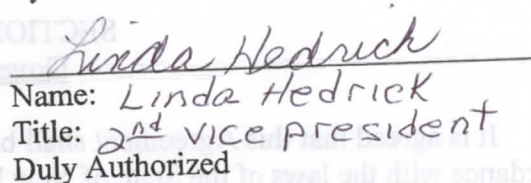 Linda Hedrick
Name: Linda Hedrick
Title: 2nd vice president
Duly Authorized